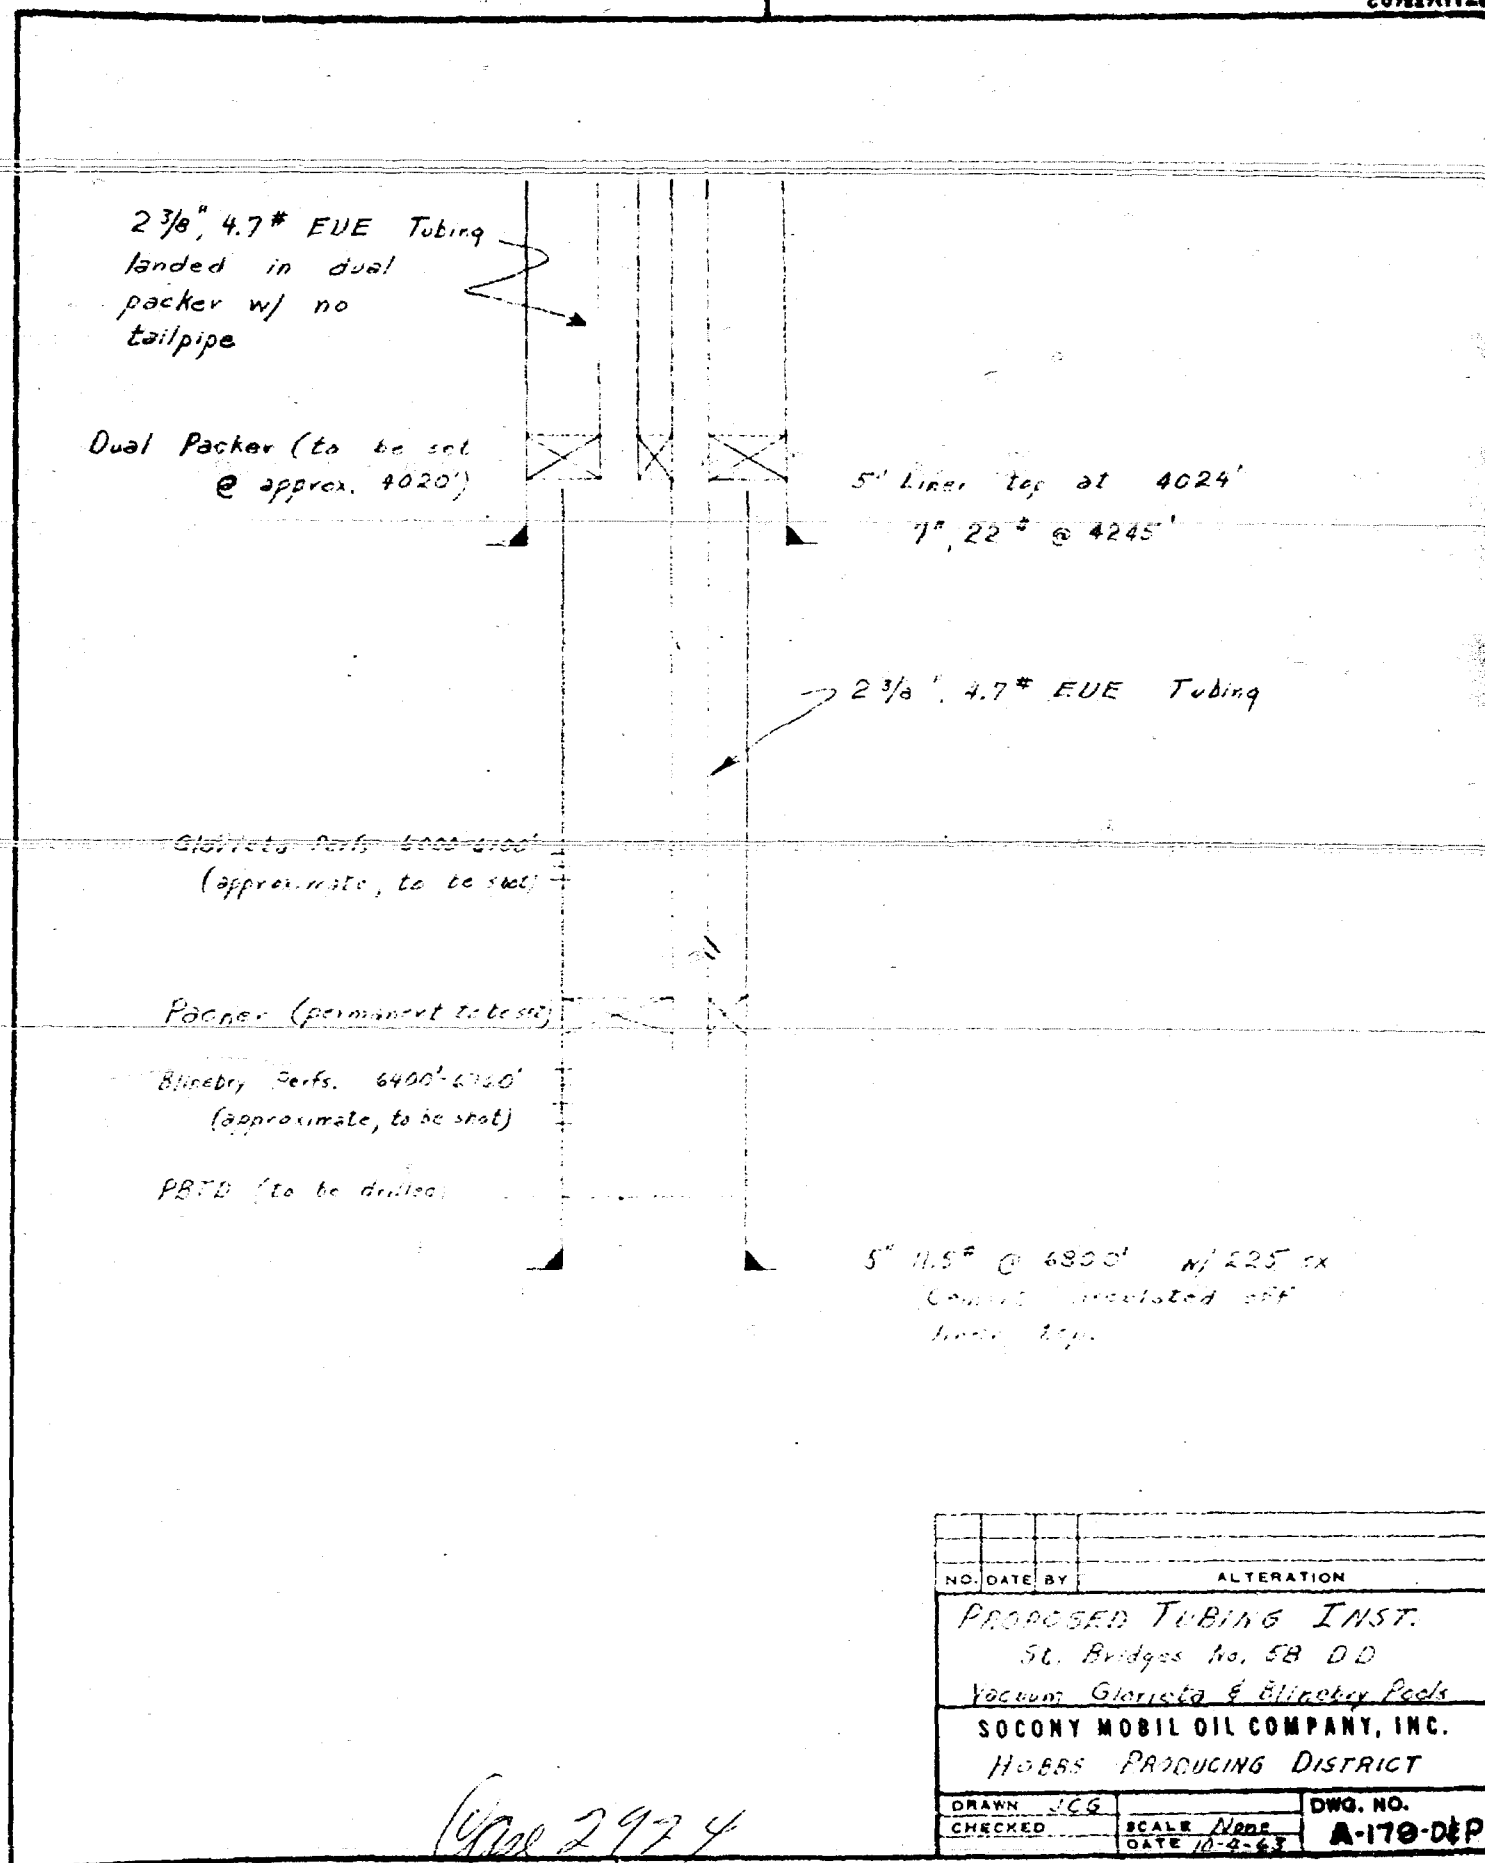 2 3/8", 4.7# EUE Tubing
landed in dual
packer w/ no
tailpipe
Dual Packer (to be set
@ approx. 4020')
5" Liner top at 4024'
7", 22# @ 4245'
2 3/8", 4.7# EUE Tubing
Glorieta Perfs 6000-6100'
(approximate, to be shot)
Packer (permanent to be set)
Blinebry Perfs. 6400'-
(approximate, to be shot)
PBTD (to be drilled)
5" 11.5# @ 6800' w/ 225 sx
Cement circulated off
liner top.
NO. DATE BY ALTERATION
PROPOSED TUBING INST.
St. Bridges No. 58 DD
Vacuum Glorieta & Blinebry Pools
SOCONY MOBIL OIL COMPANY, INC.
HOBBS PRODUCING DISTRICT
DRAWN JCG
CHECKED
SCALE None
DATE 10-4-63
DWG. NO.
A-179-D&P
Case 2924